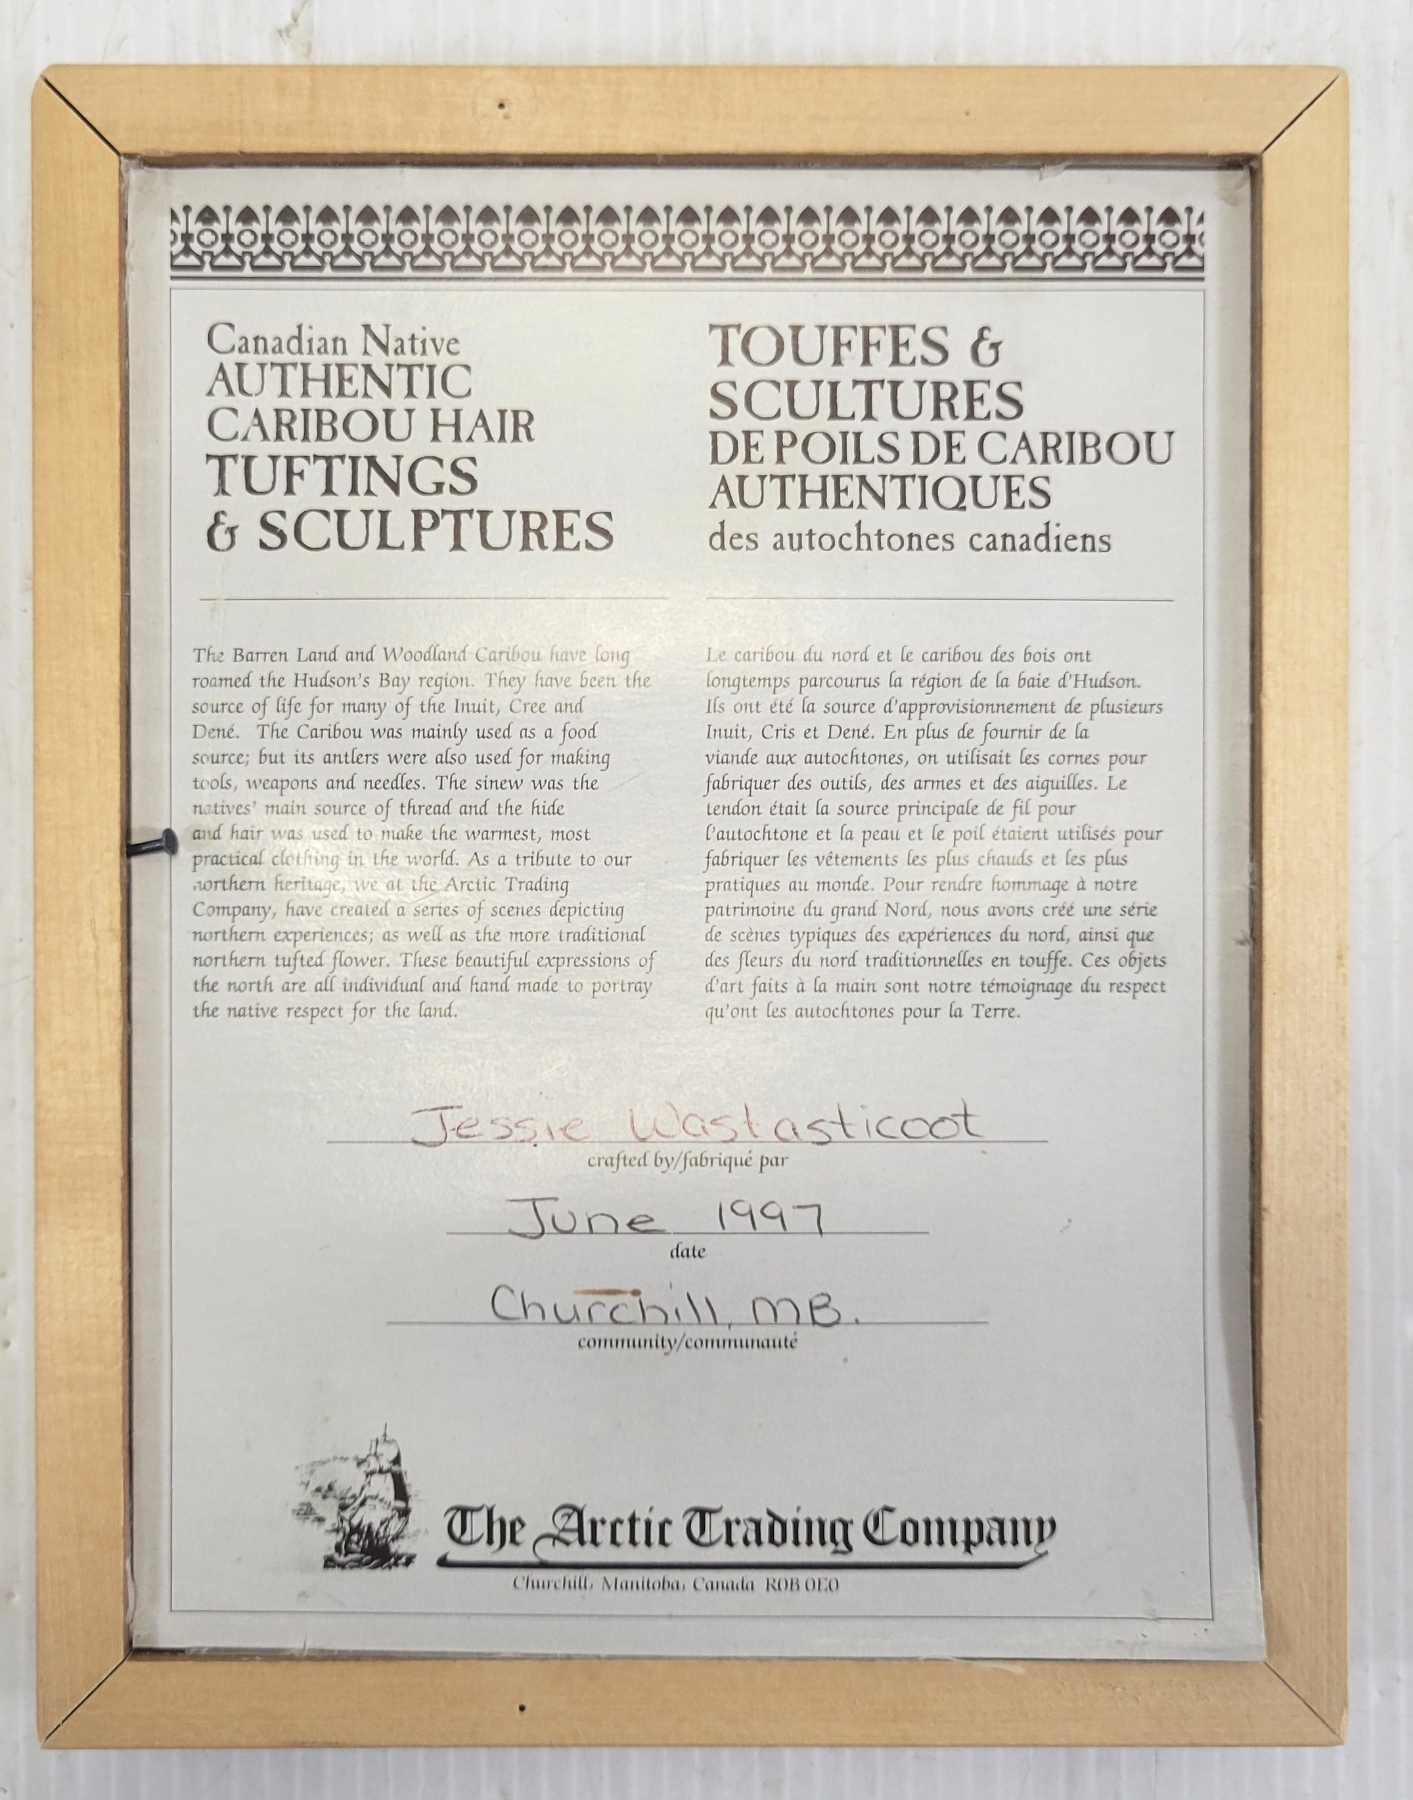 Canadian Native
AUTHENTIC
CARIBOU HAIR
TUFTINGS
& SCULPTURES
The Barren Land and Woodland Caribou have long
roamed the Hudson's Bay region. They have been the
source of life for many of the Inuit, Cree and
Dené. The Caribou was mainly used as a food
source; but its antlers were also used for making
tools, weapons and needles. The sinew was the
natives' main source of thread and the hide
and hair was used to make the warmest, most
practical clothing in the world. As a tribute to our
northern heritage, we at the Arctic Trading
Company, have created a series of scenes depicting
northern experiences; as well as the more traditional
northern tufted flower. These beautiful expressions of
the north are all individual and hand made to portray
the native respect for the land.
TOUFFES &
SCULTURES
DE POILS DE CARIBOU
AUTHENTIQUES
des autochtones canadiens
Le caribou du nord et le caribou des bois ont
longtemps parcourus la région de la baie d'Hudson.
Ils ont été la source d'approvisionnement de plusieurs
Inuit, Cris et Dené. En plus de fournir de la
viande aux autochtones, on utilisait les cornes pour
fabriquer des outils, des armes et des aiguilles. Le
tendon était la source principale de fil pour
l'autochtone et la peau et le poil étaient utilisés pour
fabriquer les vêtements les plus chauds et les plus
pratiques au monde. Pour rendre hommage à notre
patrimoine du grand Nord, nous avons créé une série
de scènes typiques des expériences du nord, ainsi que
des fleurs du nord traditionnelles en touffe. Ces objets
d'art faits à la main sont notre témoignage du respect
qu'ont les autochtones pour la Terre.
Jessie Wastasticoot
crafted by/fabriqué par
June 1997
date
Churchill, MB.
community/communauté
The Arctic Trading Company
Churchill, Manitoba, Canada R0B 0E0